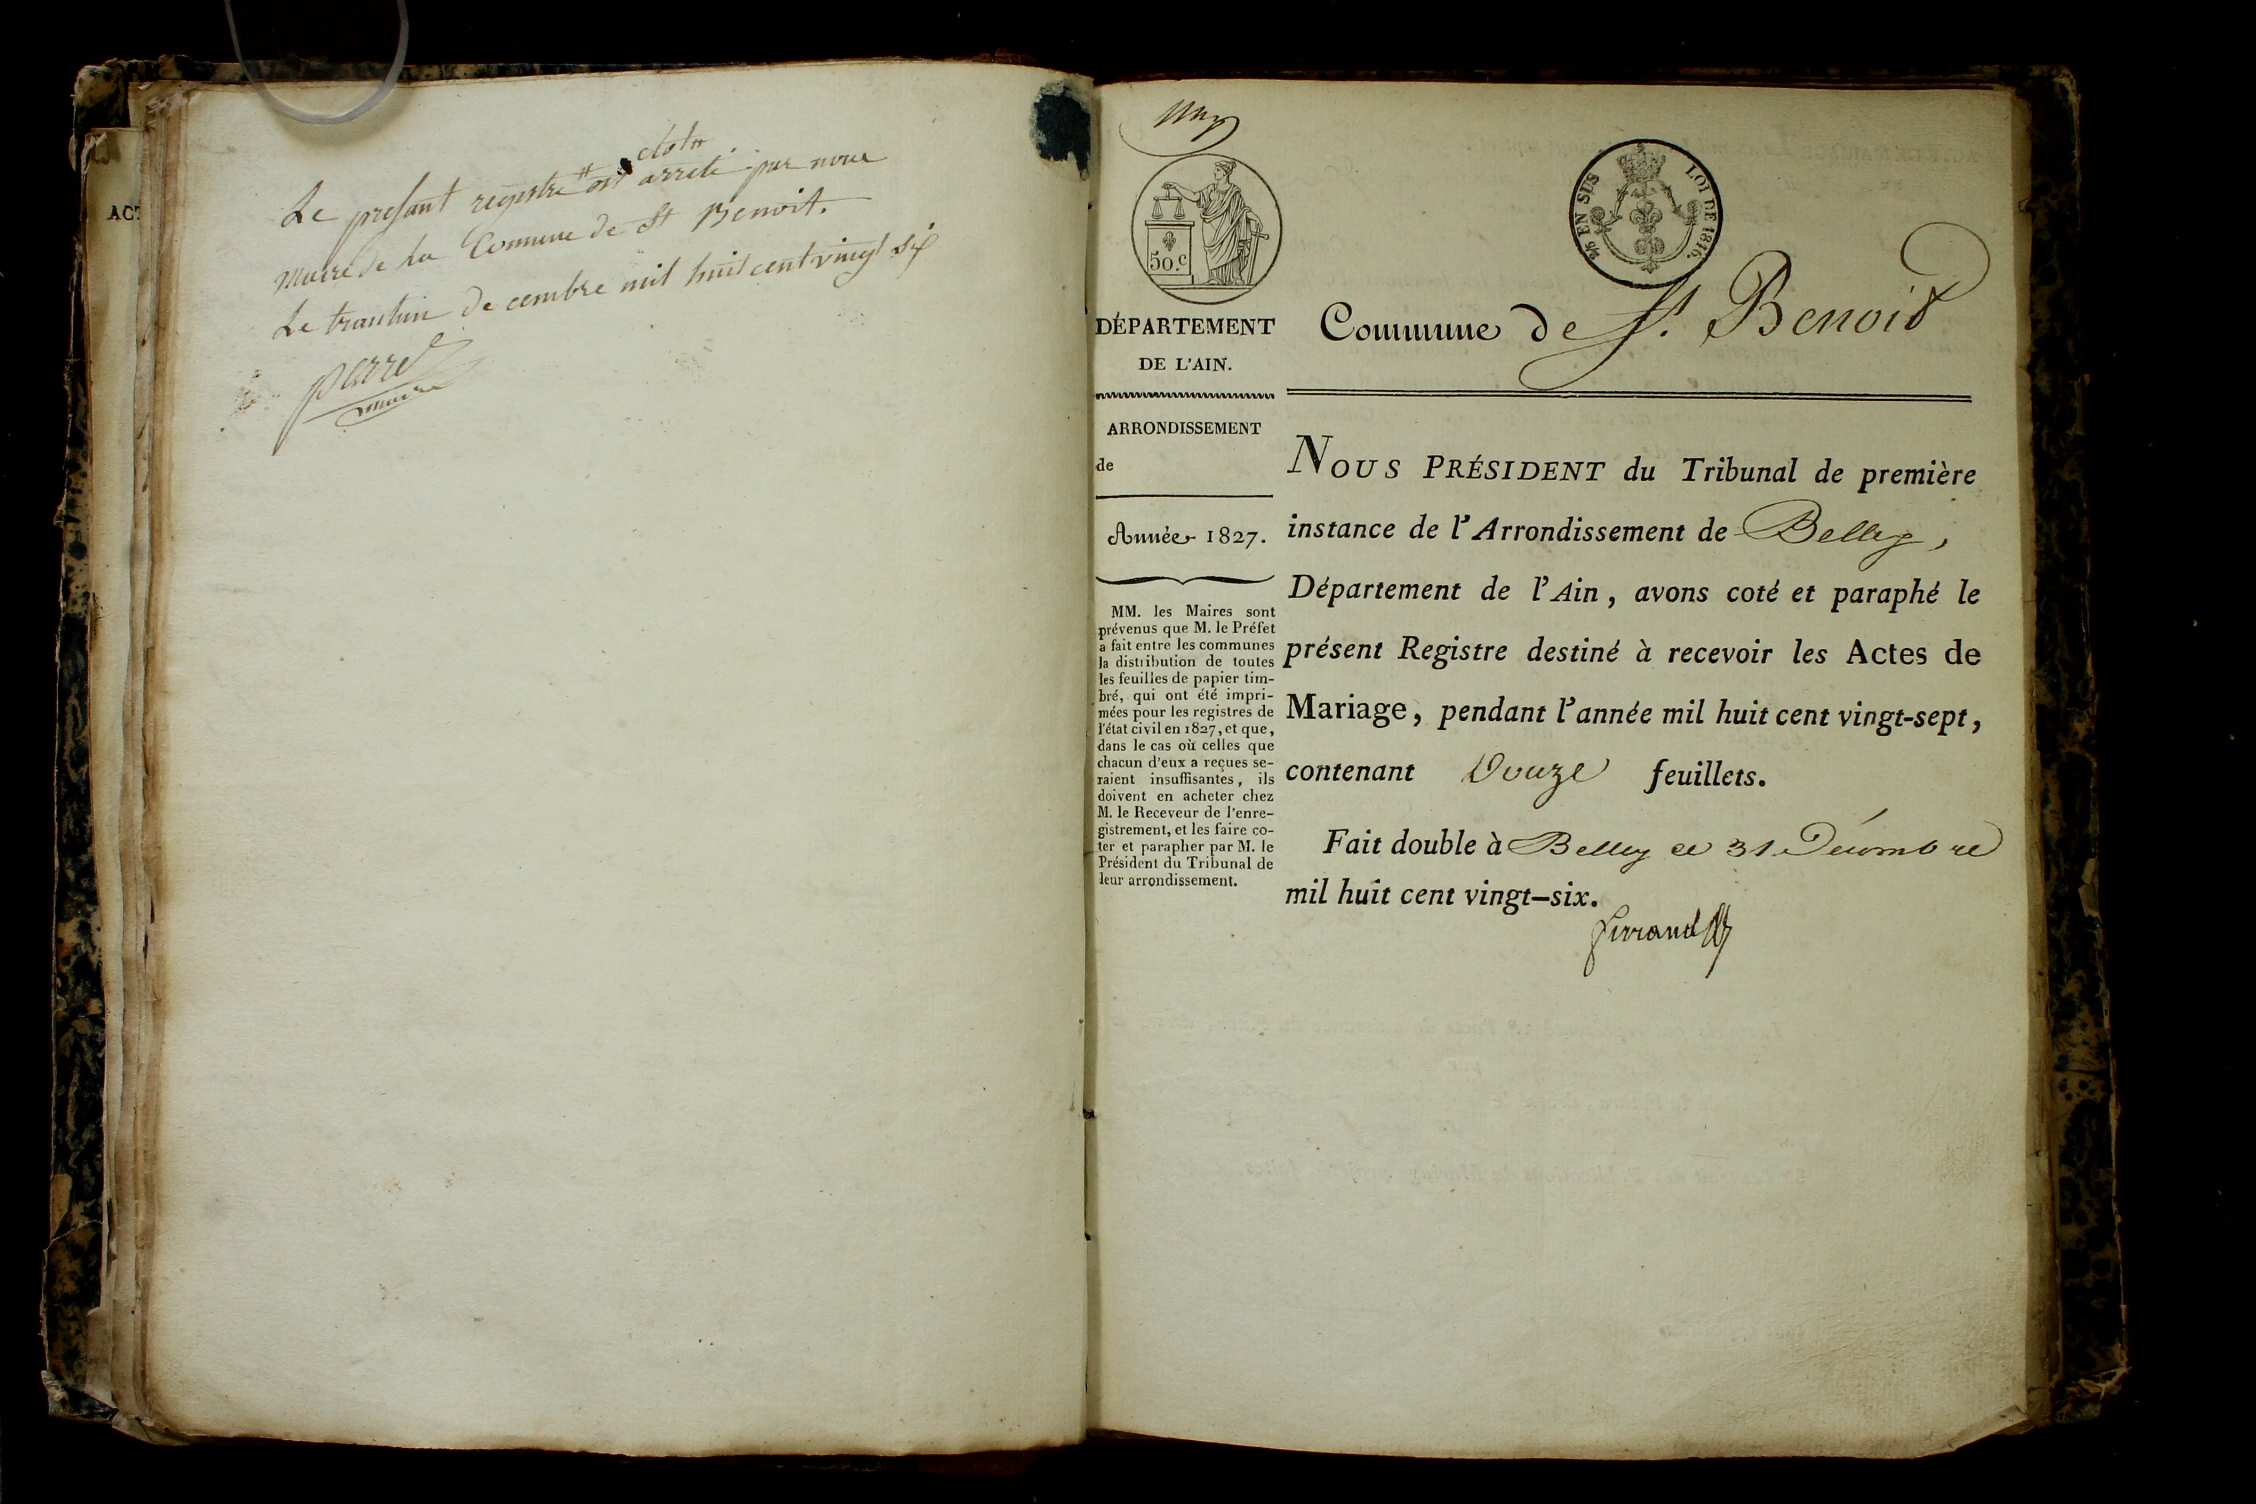 ACT
clot #
Le presant registre # est arreté par nous
maire de La Comune de St Benoit.
Le trantun de cembre mil huit cent vingt six
parret
maire
50.c
EN SUS
LOI DE 1816.
DÉPARTEMENT
DE L'AIN.
ARRONDISSEMENT
de
Année 1827.
MM. les Maires sont
prévenus que M. le Préfet
a fait entre les communes
la distribution de toutes
les feuilles de papier tim-
bré, qui ont été impri-
mées pour les registres de
l'état civil en 1827, et que,
dans le cas où celles que
chacun d'eux a reçues se-
raient insuffisantes, ils
doivent en acheter chez
M. le Receveur de l'enre-
gistrement, et les faire co-
ter et parapher par M. le
Président du Tribunal de
leur arrondissement.
Commune de St. Benoit
NOUS PRÉSIDENT du Tribunal de première
instance de l'Arrondissement de Belley,
Département de l'Ain, avons coté et paraphé le
présent Registre destiné à recevoir les Actes de
Mariage, pendant l'année mil huit cent vingt-sept,
contenant Douze feuillets.
Fait double à Belley ce 31 Décembre
mil huit cent vingt-six.